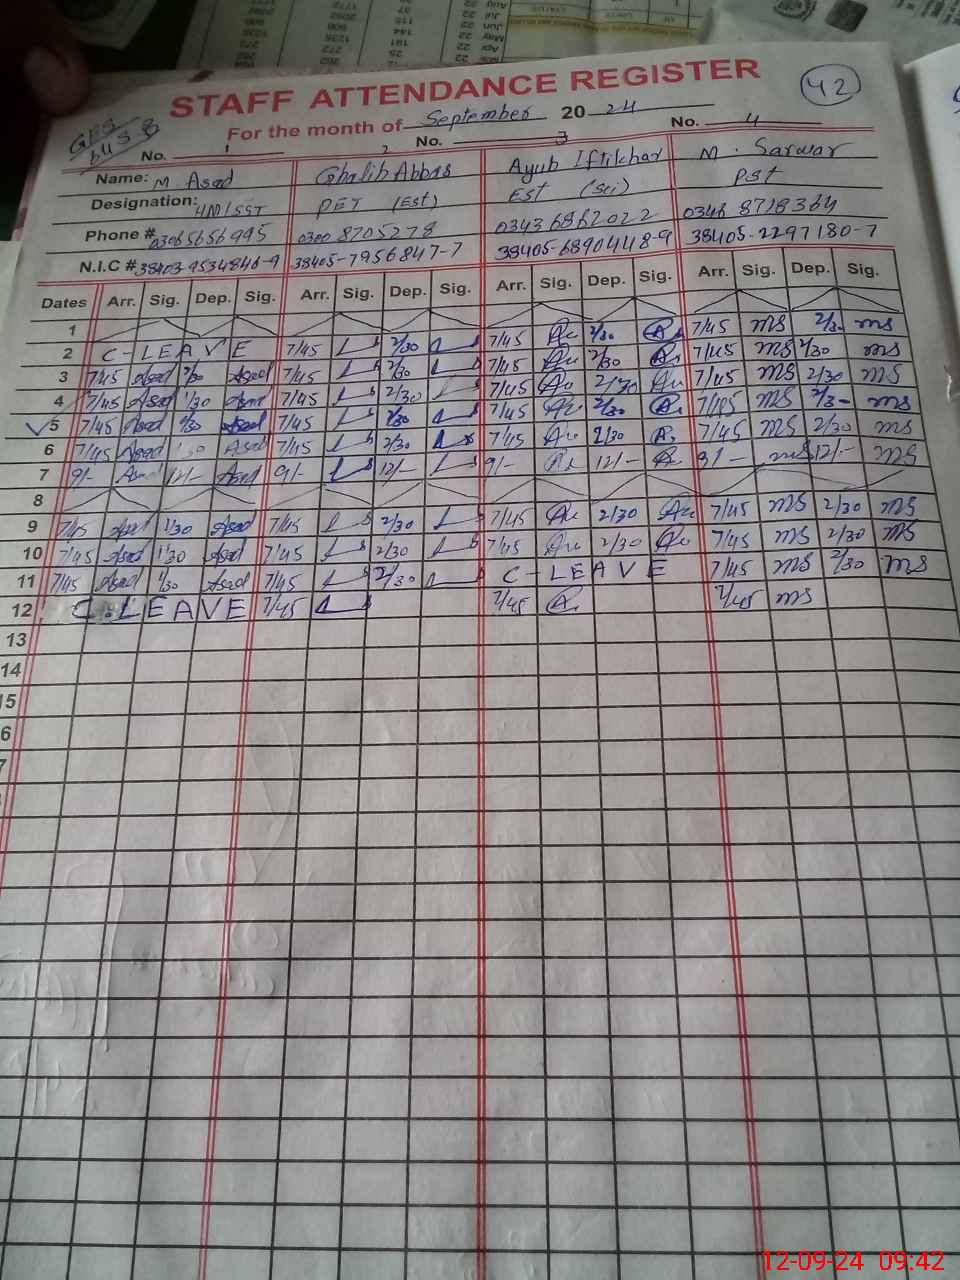 STAFF ATTENDANCE REGISTER
42
For the month of September 20 24
No. 1 2 No. 3 No. 4
Name: M Asad Ghalib Abbas Ayub Iftikhar M. Sarwar
Designation: HM/SST PET (Est) Est (Sci) PST
Phone # 03065656995 0300 8705278 03436862022 0346 8718364
N.I.C # 38403-9534846-9 38405-7956847-7 38405-6890448-9 38405-2297180-7
Dates Arr. Sig. Dep. Sig. Arr. Sig. Dep. Sig. Arr. Sig. Dep. Sig. Arr. Sig. Dep. Sig.
1
2 C-LEAVE 7/45 2/30 7/45 2/30 7/45 MS 2/30 MS
3 7/45 Asad Asad 7/45 2/30 7/45 2/30 7/45 MS 2/30 MS
4 7/45 Asad 1/30 Asad 7/45 2/30 7/45 2/30 7/45 MS 2/30 MS
5 7/45 Asad Asad 7/45 2/30 7/45 2/30 7/45 MS 2/30 MS
6 7/45 Asad Asad 7/45 2/30 7/45 2/30 7/45 MS 2/30 MS
7 9/- Asad 12/- Asad 9/- 12/- 9/- 12/- 9/- MS 12/- MS
8
9 7/45 Asad 1/30 Asad 7/45 2/30 7/45 2/30 7/45 MS 2/30 MS
10 7/45 Asad 1/30 Asad 7/45 2/30 7/45 2/30 7/45 MS 2/30 MS
11 7/45 Asad 1/30 Asad 7/45 2/30 C-LEAVE 7/45 MS 2/30 MS
12 C-LEAVE 7/45 7/45 7/45 MS
13
14
15
6
7
12-09-24 09:42